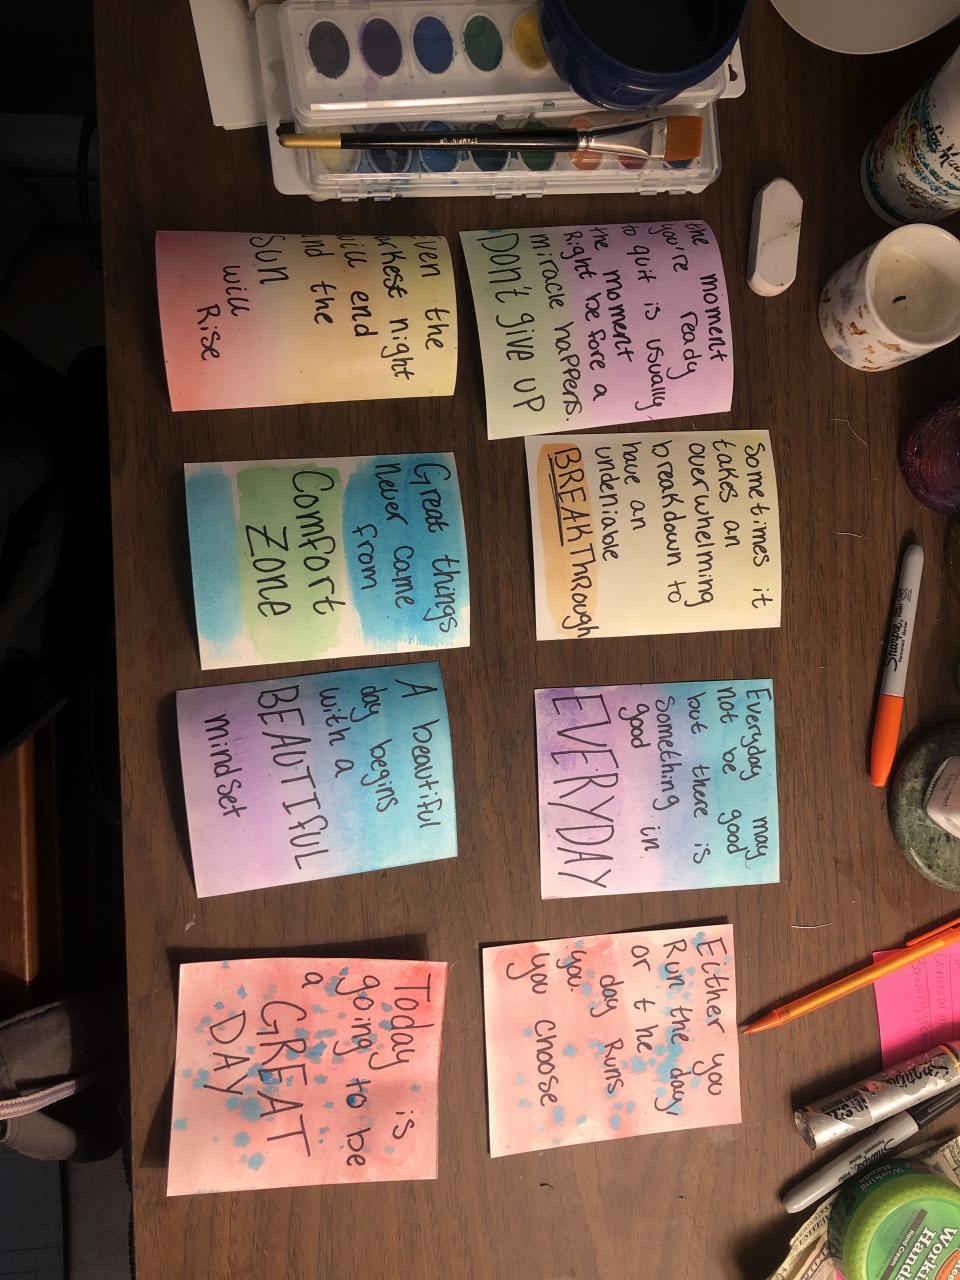 the moment
you're ready
to quit is usually
the moment
Right before a
miracle happens.
DON'T give UP
Sometimes it
takes an
overwhelming
breakdown to
have an
undeniable
BREAKTHROUGH
Everyday may
not be good
but there is
something in
good
EVERYDAY
Either you
Run the day
or the day
day Runs
you.
you choose
Even the
darkest night
will end
and the
SUN
will
Rise
Great things
never came
from
Comfort
ZONE
A beautiful
day begins
with a
BEAUTIFUL
mindset
Today is
going to be
a GREAT
DAY
STAMPIN' UP
Sharpie
Permanent Marker
Sharpie
Working
Hands
Hand Cream
Working
Hands